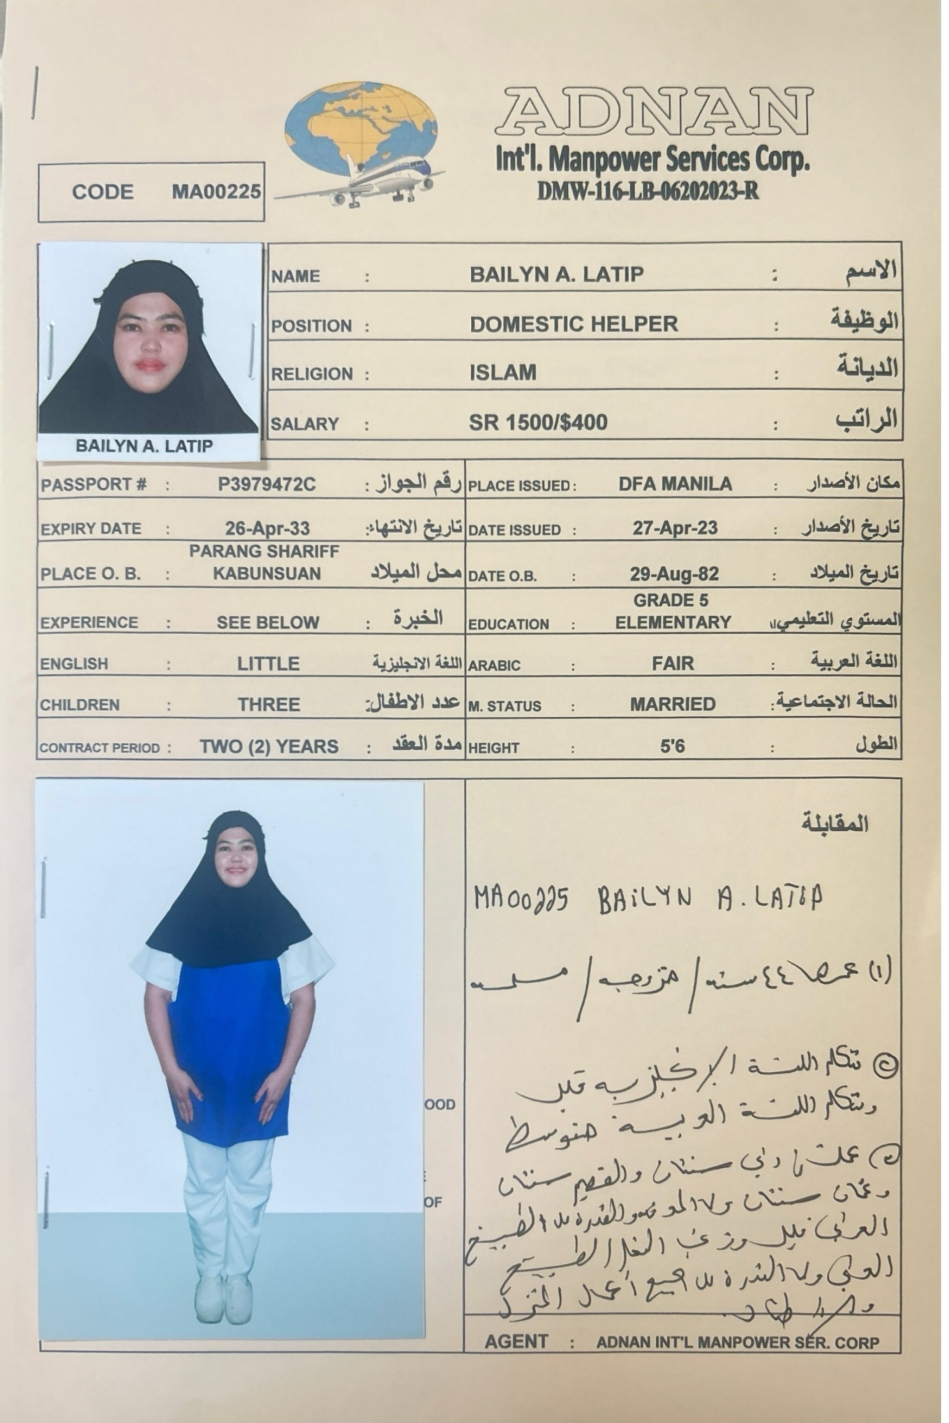 ADNAN
Int'l. Manpower Services Corp.
DMW-116-LB-06202023-R
CODE MA00225
BAILYN A. LATIP
NAME : BAILYN A. LATIP : الاسم
POSITION : DOMESTIC HELPER : الوظيفة
RELIGION : ISLAM : الديانة
SALARY : SR 1500/$400 : الراتب
PASSPORT # : P3979472C : رقم الجواز
PLACE ISSUED : DFA MANILA : مكان الأصدار
EXPIRY DATE : 26-Apr-33 تاريخ الانتهاء:
DATE ISSUED : 27-Apr-23 : تاريخ الأصدار
PLACE O. B. : PARANG SHARIFF KABUNSUAN محل الميلاد
DATE O.B. : 29-Aug-82 : تاريخ الميلاد
EXPERIENCE : SEE BELOW : الخبرة
EDUCATION : GRADE 5 ELEMENTARY المستوي التعليمي
ENGLISH : LITTLE اللغة الانجليزية
ARABIC : FAIR : اللغة العربية
CHILDREN : THREE عدد الاطفال:
M. STATUS : MARRIED الحالة الاجتماعية:
CONTRACT PERIOD : TWO (2) YEARS : مدة العقد
HEIGHT : 5'6 : الطول
المقابلة
MA00225 BAILYN A. LATIP
(١) عمرها ٤٤ سنه / متزوجه / مسلمه
تتكلم اللغة الإنجليزيه قليل
وتتكلم اللغة العربية متوسط
سنتان والقصيم سنتان
سنتان الطبيخ
العربي قليل الطبيخ
العربي جميع أعمال المنزل
OOD
OF
AGENT : ADNAN INT'L MANPOWER SER. CORP